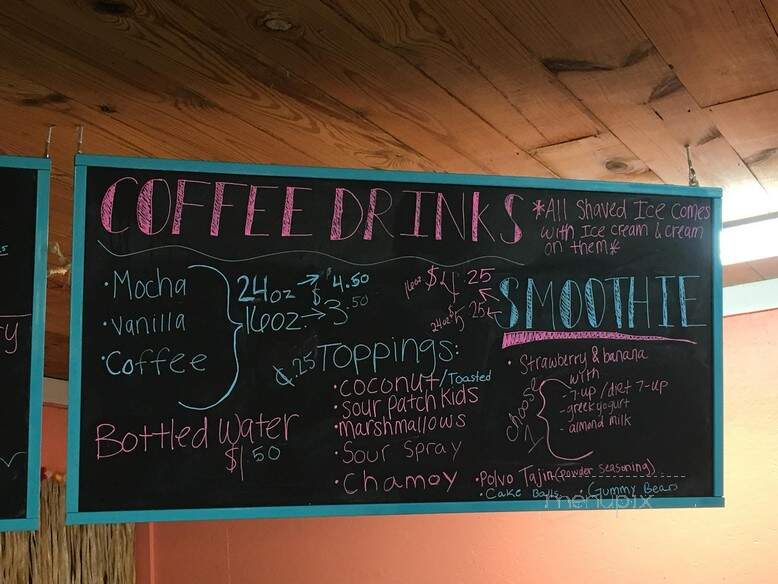 COFFEE DRINKS
*All Shaved Ice comes
with Ice cream & cream
on them*
•Mocha
•vanilla
•Coffee
24oz → $4.50
16oz. → 3.50
16oz $4.25
24oz $5.25
SMOOTHIE
• Strawberry & banana
with
choose 1
-7-up /diet 7-up
-greek yogurt
- almond milk
.25 TOPPINGS:
•coconut/Toasted
•sour patch kids
•marshmallows
•Sour Spray
•Chamoy
•Polvo Tajin (powder seasoning)
•Cake Balls
•Gummy Bears
Bottled Water
$1.50
menupix
ry